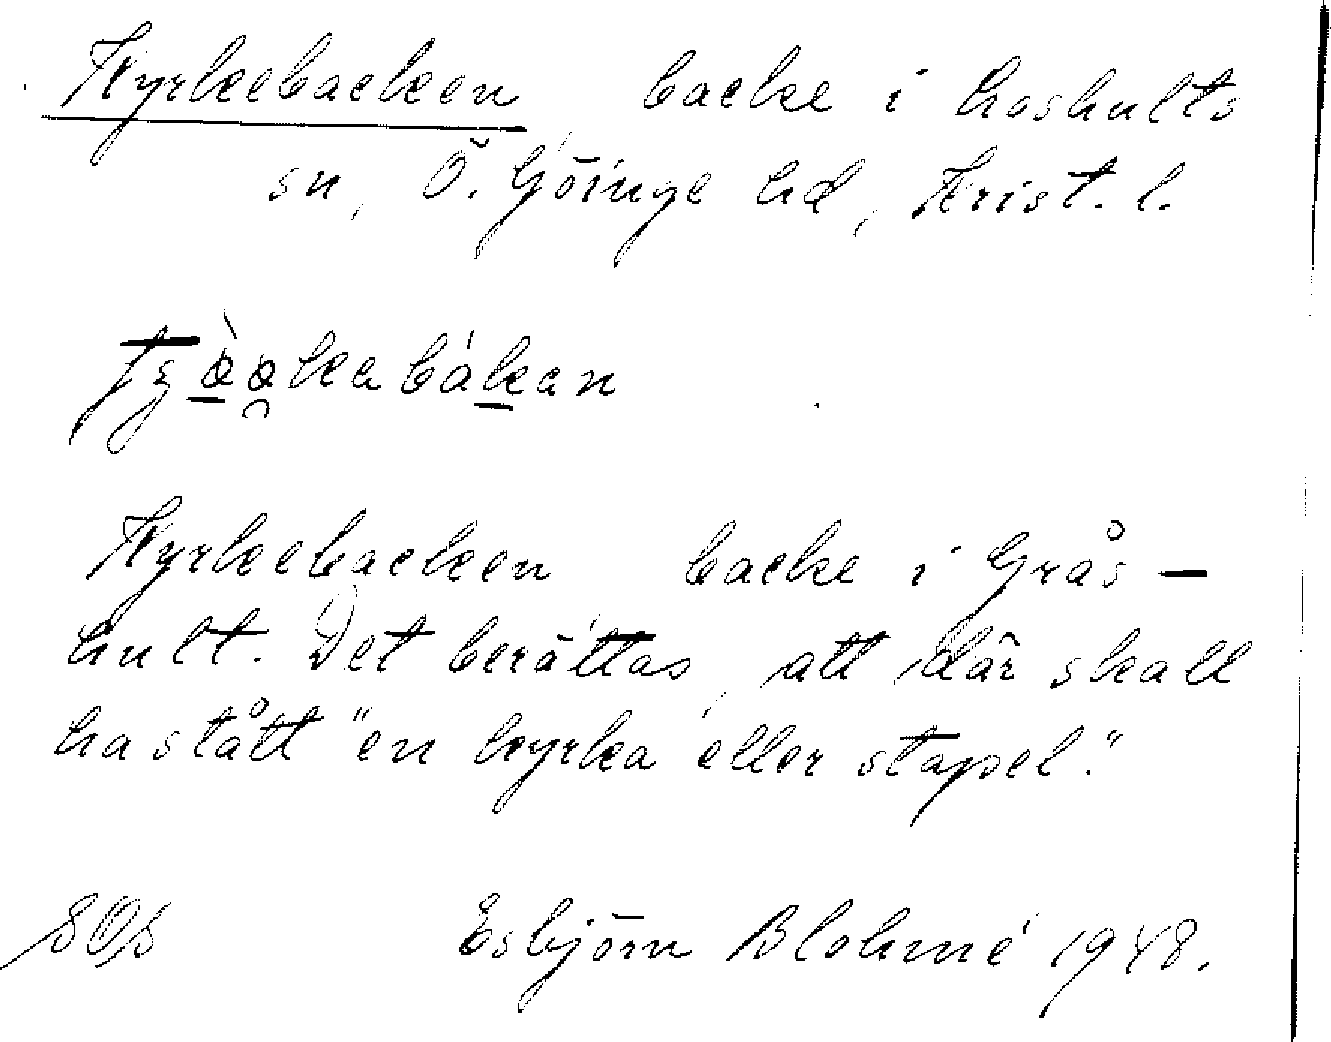 Kyrkebacken, backe i Loshults
sn, Ö. Göinge hd, Krist. l.
Kyrkebacken backe i Grås-
hult. Det berättas, att där skall
ha stått "en kyrka eller stapel."
SOS Esbjörn Blohmé 1948.